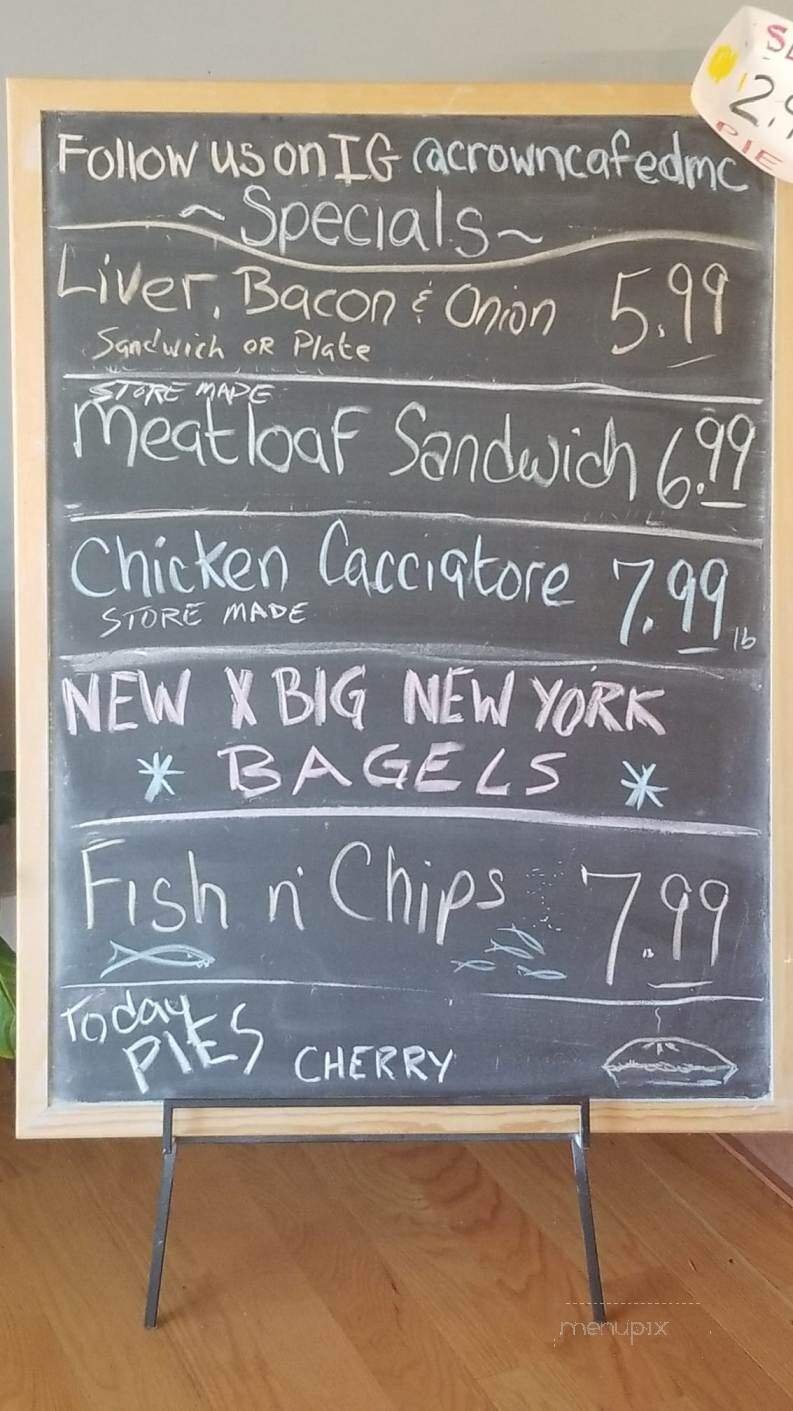 Follow us on IG @acrowncafedmc
~Specials~
Liver, Bacon & Onion 5.99
Sandwich OR Plate
STORE MADE
Meatloaf Sandwich 6.99
Chicken Cacciatore 7.99 lb
STORE MADE
NEW X BIG NEW YORK
* BAGELS *
Fish n' Chips 7.99
Today
PIES CHERRY
PIE
menupix